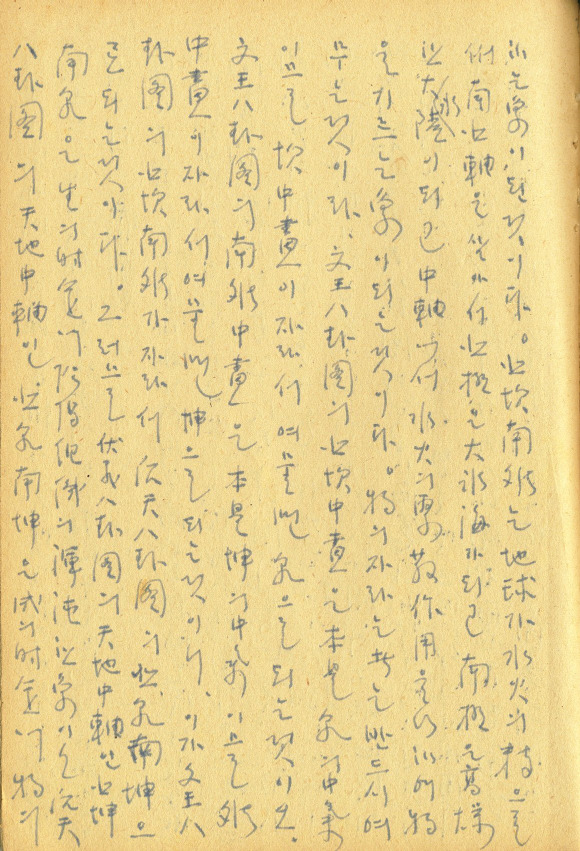 는 象이 된 것이다。 北坎南離는 地球가 水火의 精으로
南北軸을 세워서 北極은 大氷海가 되고 南極은 高燥
한 大陸이 되고 中軸에서 水火의 作用을 하여 物
을 기르는 象이 되는 것이다。 物의 자라는 바는 반드시 여
무는 것이라、 文王八卦圖의 北坎中畫은 本是 乾의 中氣
이므로 坎中畫이 자라서 여물면 乾으로 되는 것이오、
文王八卦圖의 南離中畫은 本是 坤의 中氣이므로 離
中畫이 자라서 여물면 坤으로 되는 것이니、 이가 文王八
卦圖의 北坎南離가 자라서 后天八卦圖의 北乾南坤으
로 되는 것이다。 그러므로 伏羲八卦圖의 天地中軸인 北坤
南乾은 生의 時會에 陰陽 의 渾沌한 象이오 后天
八卦圖의 天地中軸인 北乾南坤은 成의 時會에 物의